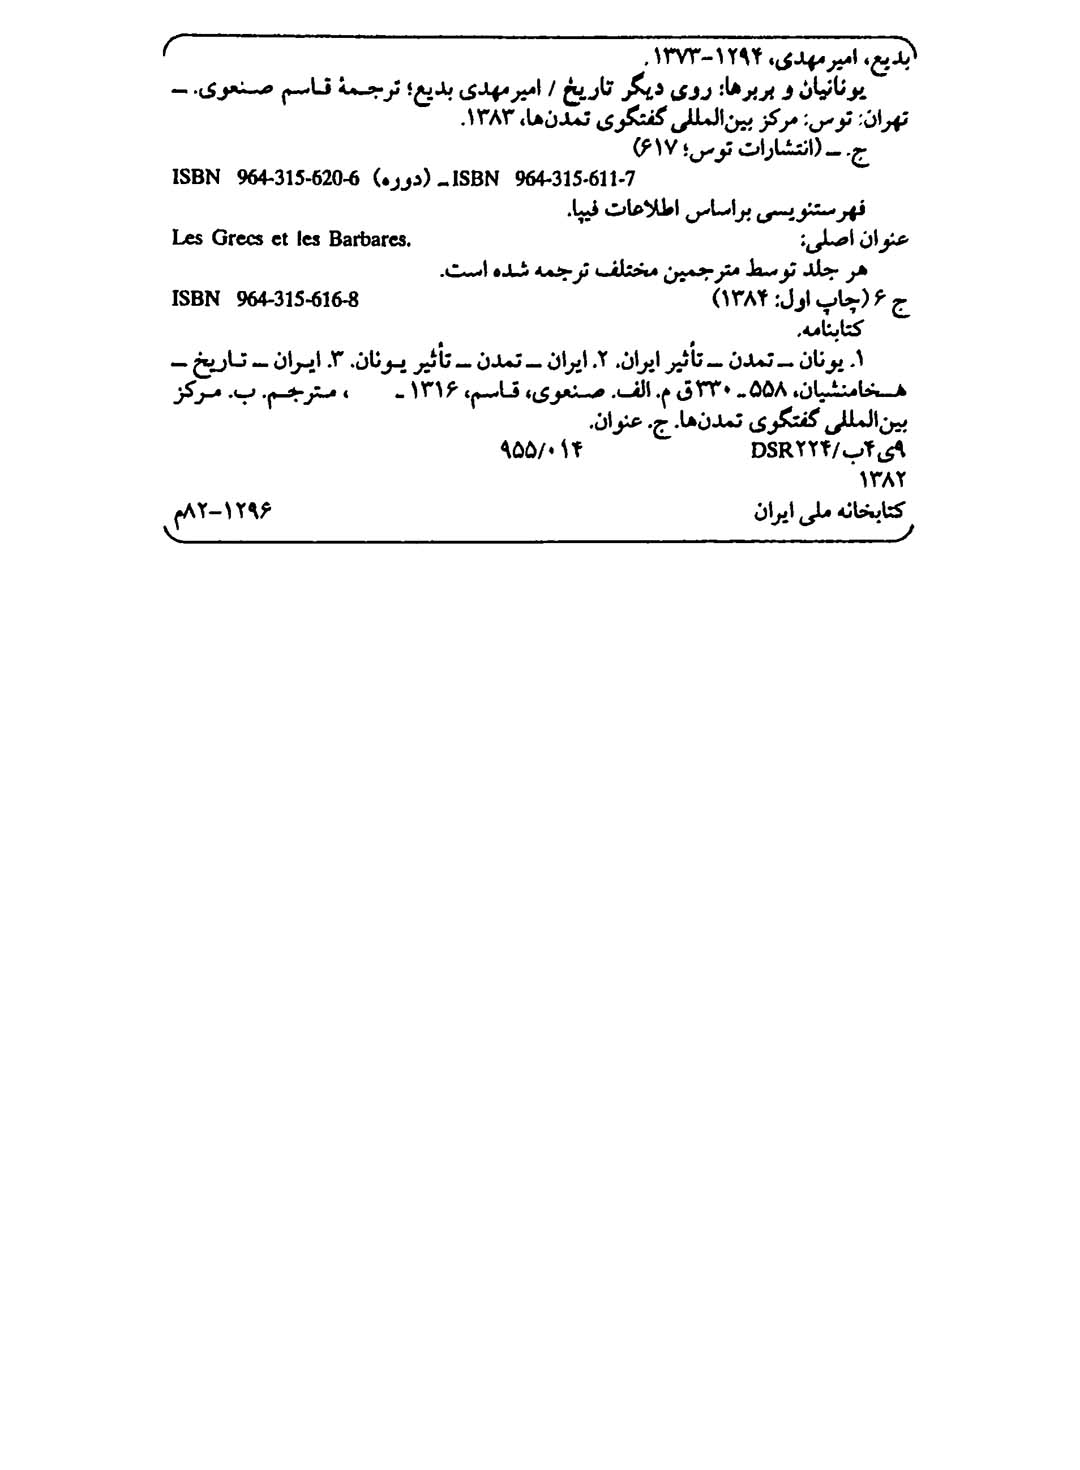 بدیع، امیرمهدی، ۱۲۹۴-۱۳۷۳.
یونانیان و بربرها: روی دیگر تاریخ / امیرمهدی بدیع؛ ترجمهٔ قاسم صنعوی. ـ
تهران: توس: مرکز بین‌المللی گفتگوی تمدن‌ها، ۱۳۸۳.
ج. ـ (انتشارات توس؛ ۶۱۷)
ISBN 964-315-611-7 ـ (دوره) ISBN 964-315-620-6
فهرستنویسی براساس اطلاعات فیپا.
عنوان اصلی: Les Grecs et les Barbares.
هر جلد توسط مترجمین مختلف ترجمه شده است.
ج ۶ (چاپ اول: ۱۳۸۴) ISBN 964-315-616-8
کتابنامه.
۱. یونان ـ تمدن ـ تأثیر ایران. ۲. ایران ـ تمدن ـ تأثیر یونان. ۳. ایران ـ تاریخ ـ
هخامنشیان، ۵۵۸ ـ ۳۳۰ ق م. الف. صنعوی، قاسم، ۱۳۱۶ ـ ، مترجم. ب. مرکز
بین‌المللی گفتگوی تمدن‌ها. ج. عنوان.
۹ی۴ب/DSR۲۲۴ ۹۵۵/۰۱۴
۱۳۸۲
کتابخانه ملی ایران ۱۲۹۶-۸۲م